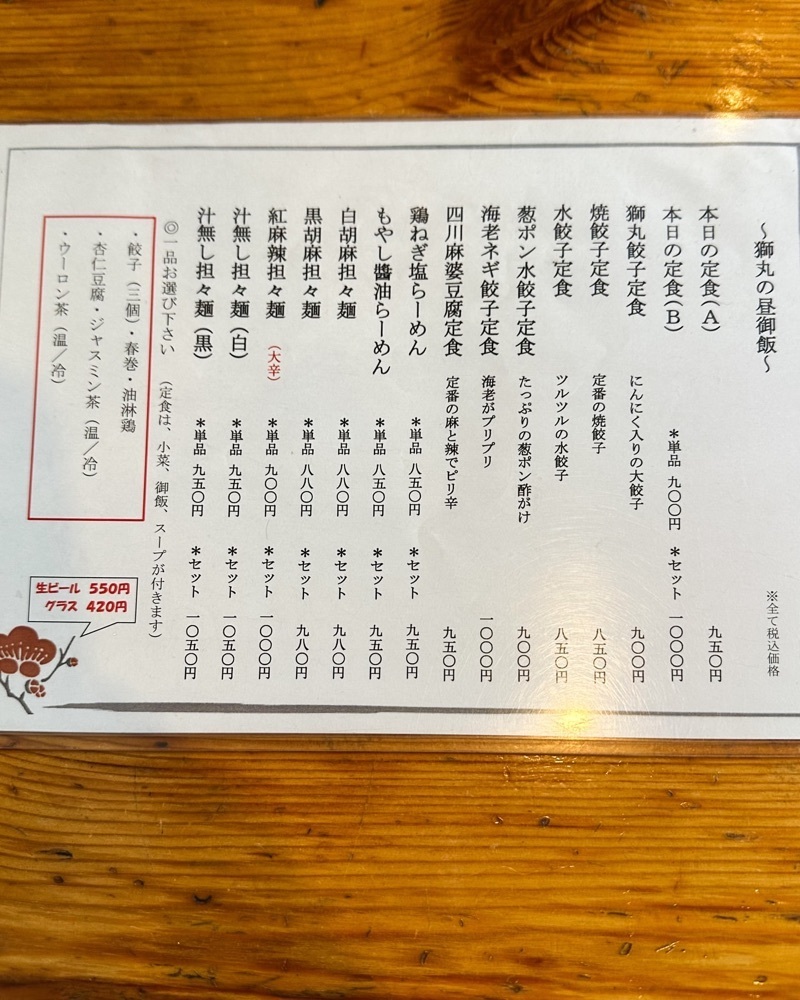 ～獅丸の昼御飯～
※全て税込価格
本日の定食(A) 九五〇円
本日の定食(B) ＊単品 九〇〇円 ＊セット 一〇〇〇円
獅丸餃子定食 にんにく入りの大餃子 九〇〇円
焼餃子定食 定番の焼餃子 八五〇円
水餃子定食 ツルツルの水餃子 八五〇円
葱ポン水餃子定食 たっぷりの葱ポン酢がけ 九〇〇円
海老ネギ餃子定食 海老がプリプリ 一〇〇〇円
四川麻婆豆腐定食 定番の麻と辣でピリ辛 九五〇円
鶏ねぎ塩らーめん ＊単品 八五〇円 ＊セット 九五〇円
もやし醬油らーめん ＊単品 八五〇円 ＊セット 九五〇円
白胡麻担々麺 ＊単品 八八〇円 ＊セット 九八〇円
黒胡麻担々麺 ＊単品 八八〇円 ＊セット 九八〇円
紅麻辣担々麺 (大辛) ＊単品 九〇〇円 ＊セット 一〇〇〇円
汁無し担々麺(白) ＊単品 九五〇円 ＊セット 一〇五〇円
汁無し担々麺(黒) ＊単品 九五〇円 ＊セット 一〇五〇円
◎一品お選び下さい (定食は、小菜、御飯、スープが付きます)
・餃子(三個)・春巻・油淋鶏
・杏仁豆腐・ジャスミン茶(温／冷)
・ウーロン茶(温／冷)
生ビール 550円
グラス 420円